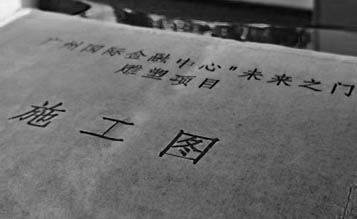 广州国际金融中心"未来之门
雕塑项目
施工图